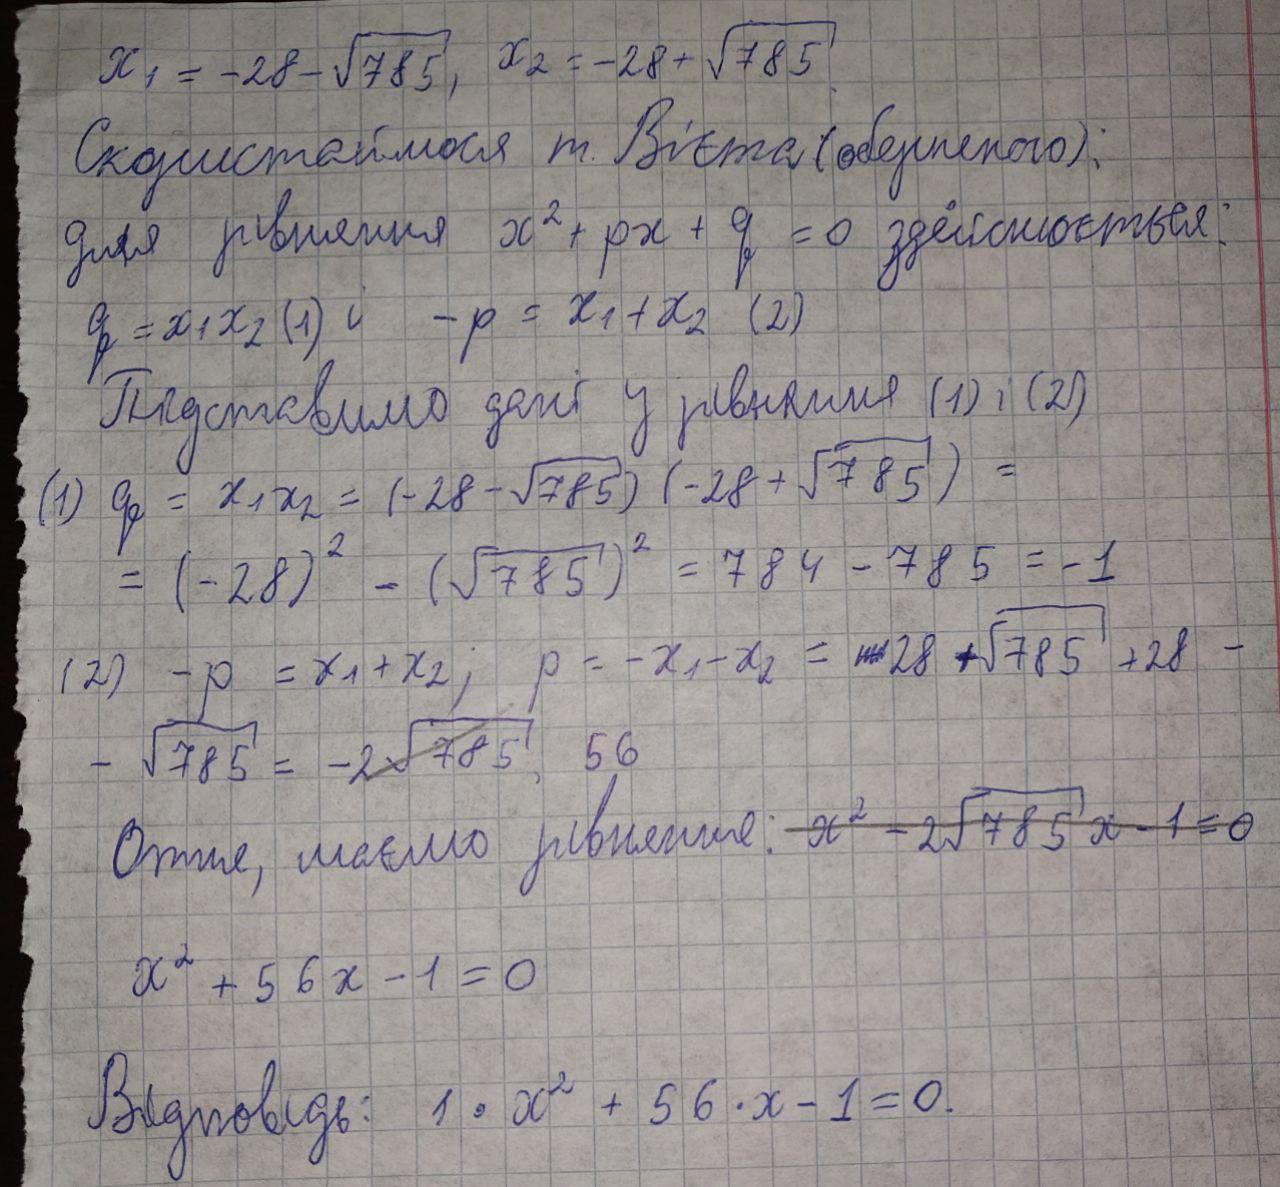 x₁ = -28-√785, x₂ = -28+√785.
Скористаймося т. Вієта (оберненою):
для рівняння x² + px + q = 0 здійснюється:
q = x₁x₂ (1) і -p = x₁ + x₂ (2)
Підставимо дані у рівняння (1) і (2)
(1) q = x₁x₂ = (-28-√785) (-28+√785) =
= (-28)² - (√785)² = 784 - 785 = -1
(2) -p = x₁ + x₂; p = -x₁ - x₂ = 28 +√785 +28 -
- √785 = -2√785, 56
Отже, маємо рівняння: x² - 2√785 x - 1 = 0
x² + 56x - 1 = 0
Відповідь: 1 · x² + 56 · x - 1 = 0.